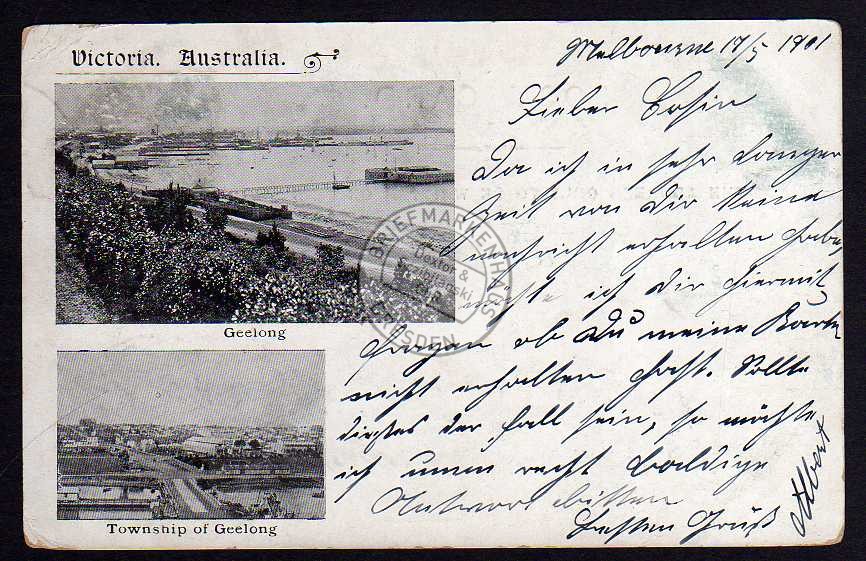 Victoria. Australia.
Melbourne 17/5 1901
Lieber Cosin
Da ich in sehr langer
Zeit von Dir keine
nachricht erhalten habe,
ich Dir hiermit
fragen ob Du meine Karte
nicht erhalten hast. Sollte
dieses der fall sein, so möchte
ich umm recht baldige
Antwort bitten
besten Gruß
Albert
Geelong
Township of Geelong
BRIEFMARKENHAUS
Dextor &
DRESDEN